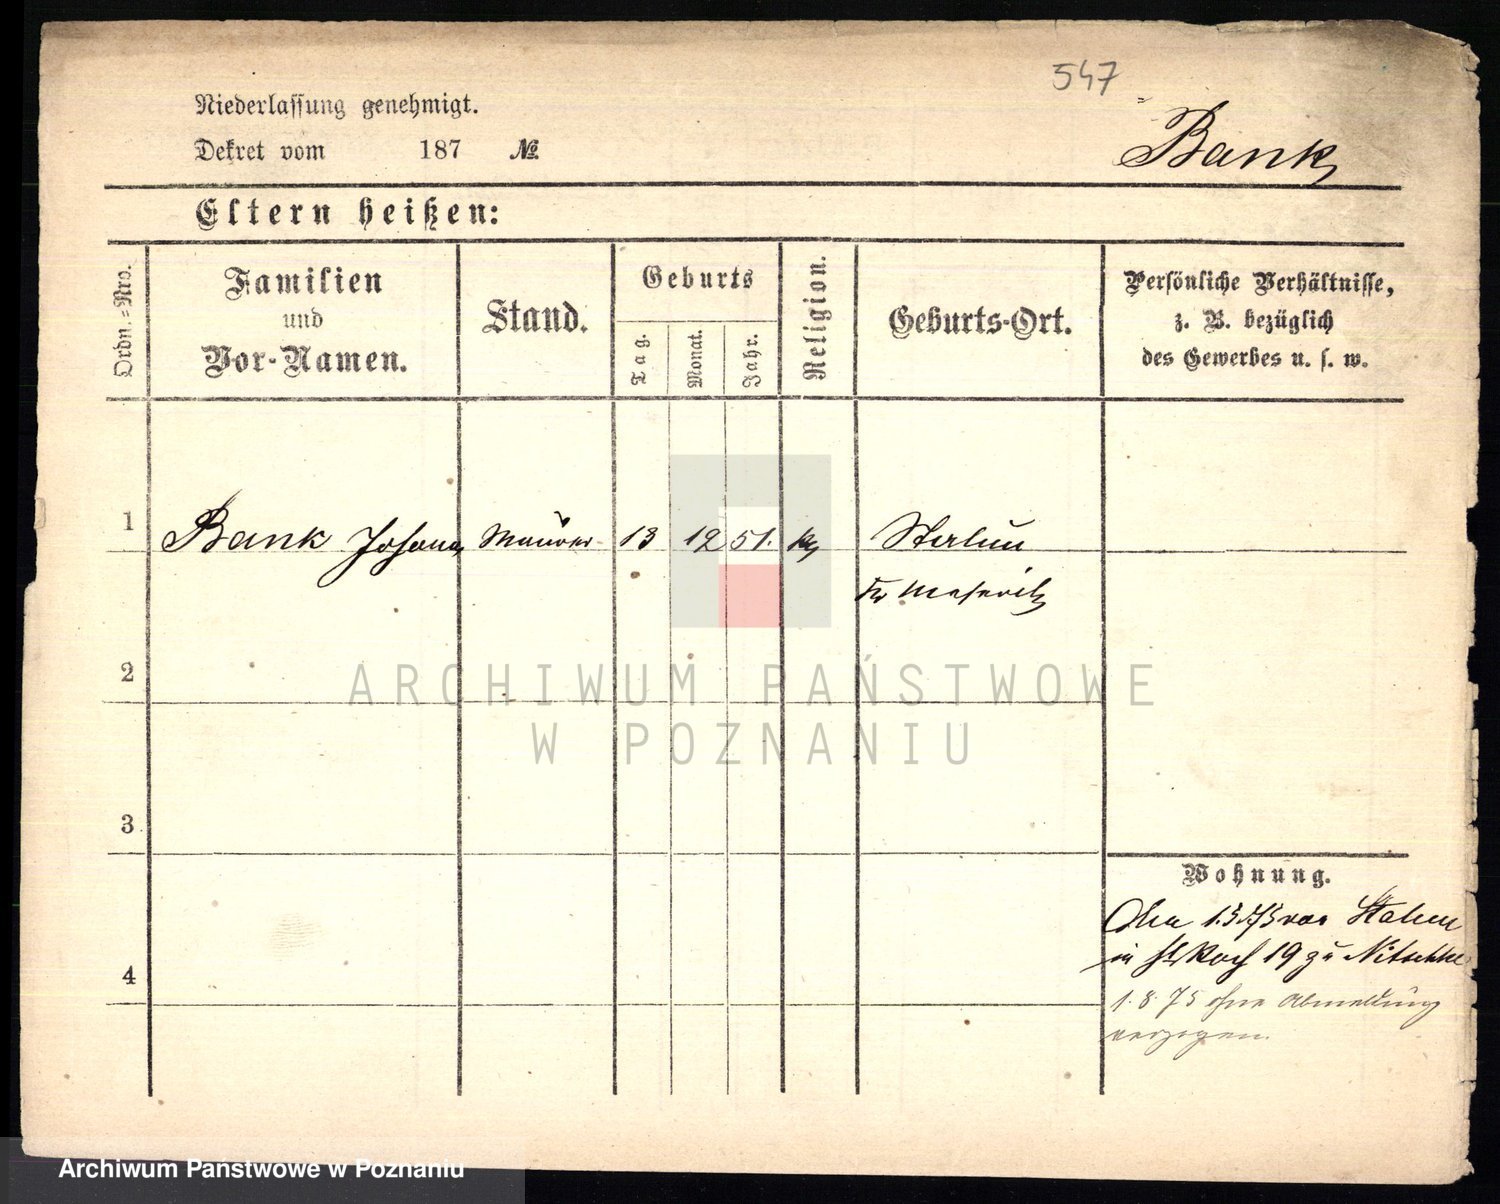 547
Niederlassung genehmigt.
Dekret vom 187 №
Bank
Eltern heißen:
Ordn.=Nro.
Familien
und
Vor-Namen.
Stand.
Geburts
Tag.
Monat.
Jahr.
Religion.
Geburts-Ort.
Persönliche Verhältnisse,
z. B. bezüglich
des Gewerbes u. s. w.
1 Bank Johann Maurer 13 12 51. k
Kr Meseritz
2
ARCHIWUM PAŃSTWOWE
W POZNANIU
3
Wohnung.
in St Roch 19 zu Nitschke
4
1. 8. 75 ohne Abmeldung
verzogen.
Archiwum Państwowe w Poznaniu